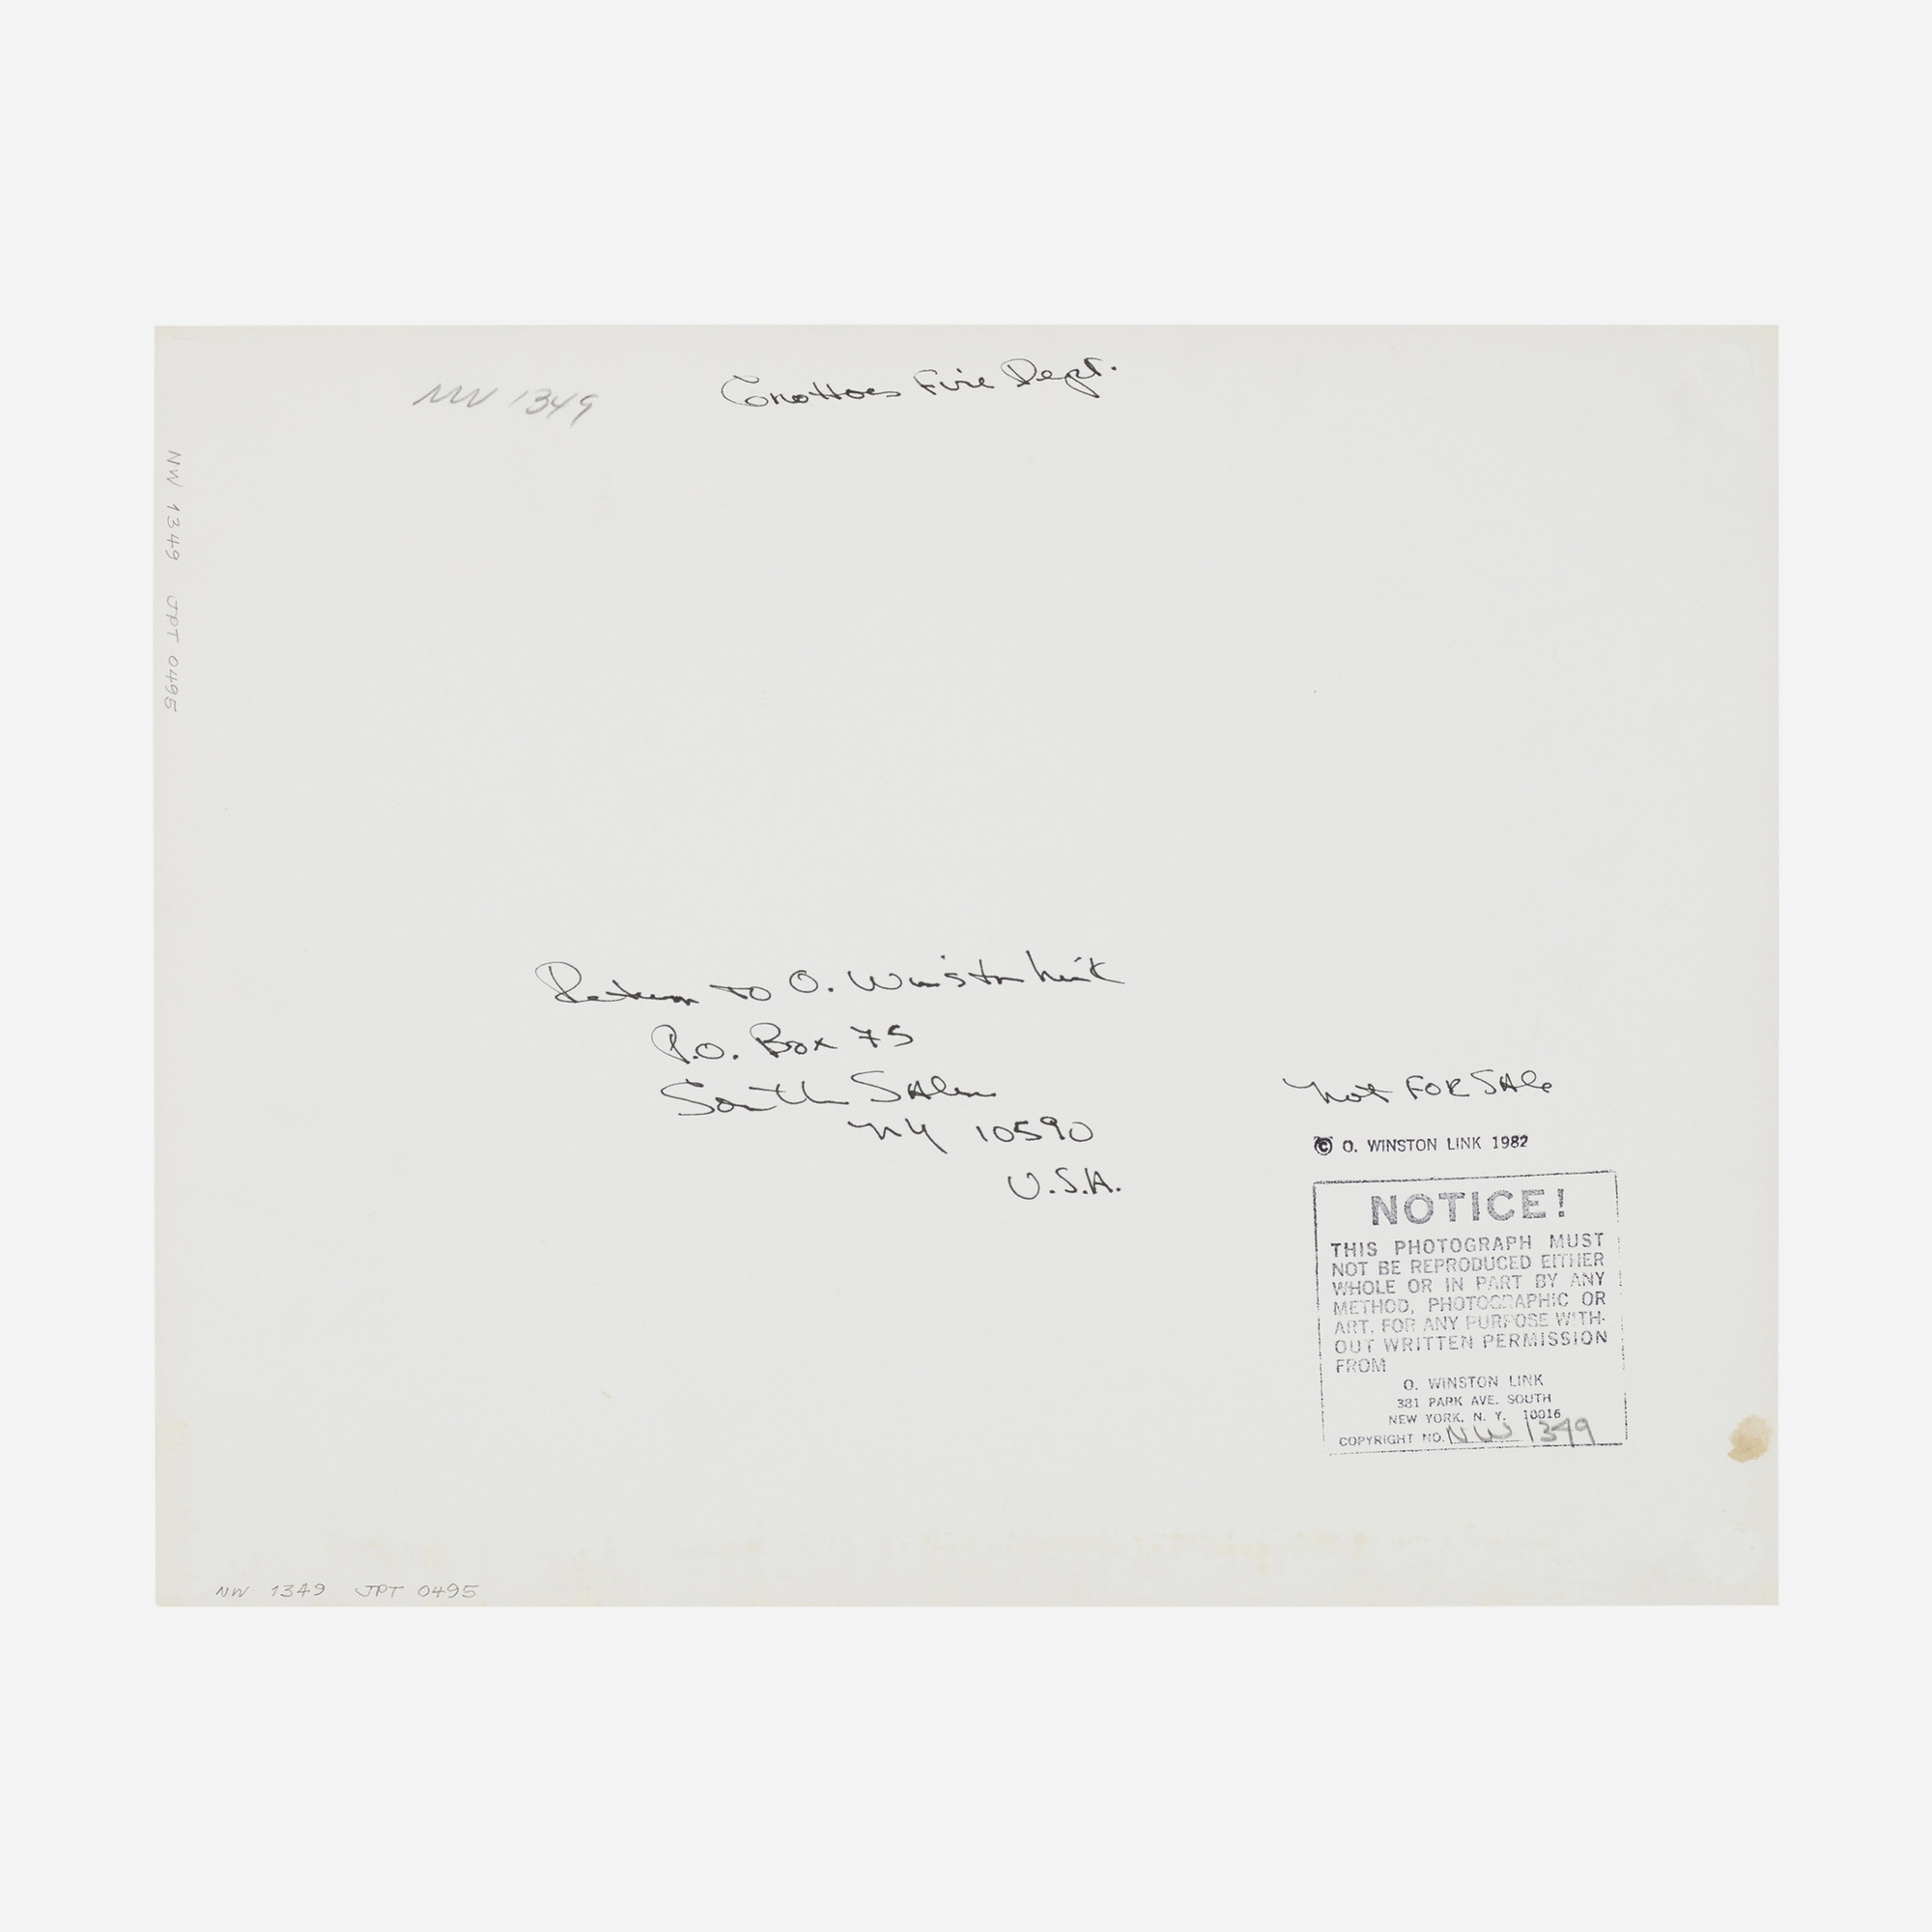 NW 1349
Grottoes Fire Dept.
NW 1349 JPT 0495
Return to O. Winston Link
P.O. Box 75
South Salem
NY 10590
U.S.A.
Not FOR SAle
© O. WINSTON LINK 1982
NOTICE!
THIS PHOTOGRAPH MUST
NOT BE REPRODUCED EITHER
WHOLE OR IN PART BY ANY
METHOD, PHOTOGRAPHIC OR
ART, FOR ANY PURPOSE WITH-
OUT WRITTEN PERMISSION
FROM
O. WINSTON LINK
381 PARK AVE. SOUTH
NEW YORK, N. Y. 10016
COPYRIGHT NO. NW 1349
NW 1349 JPT 0495